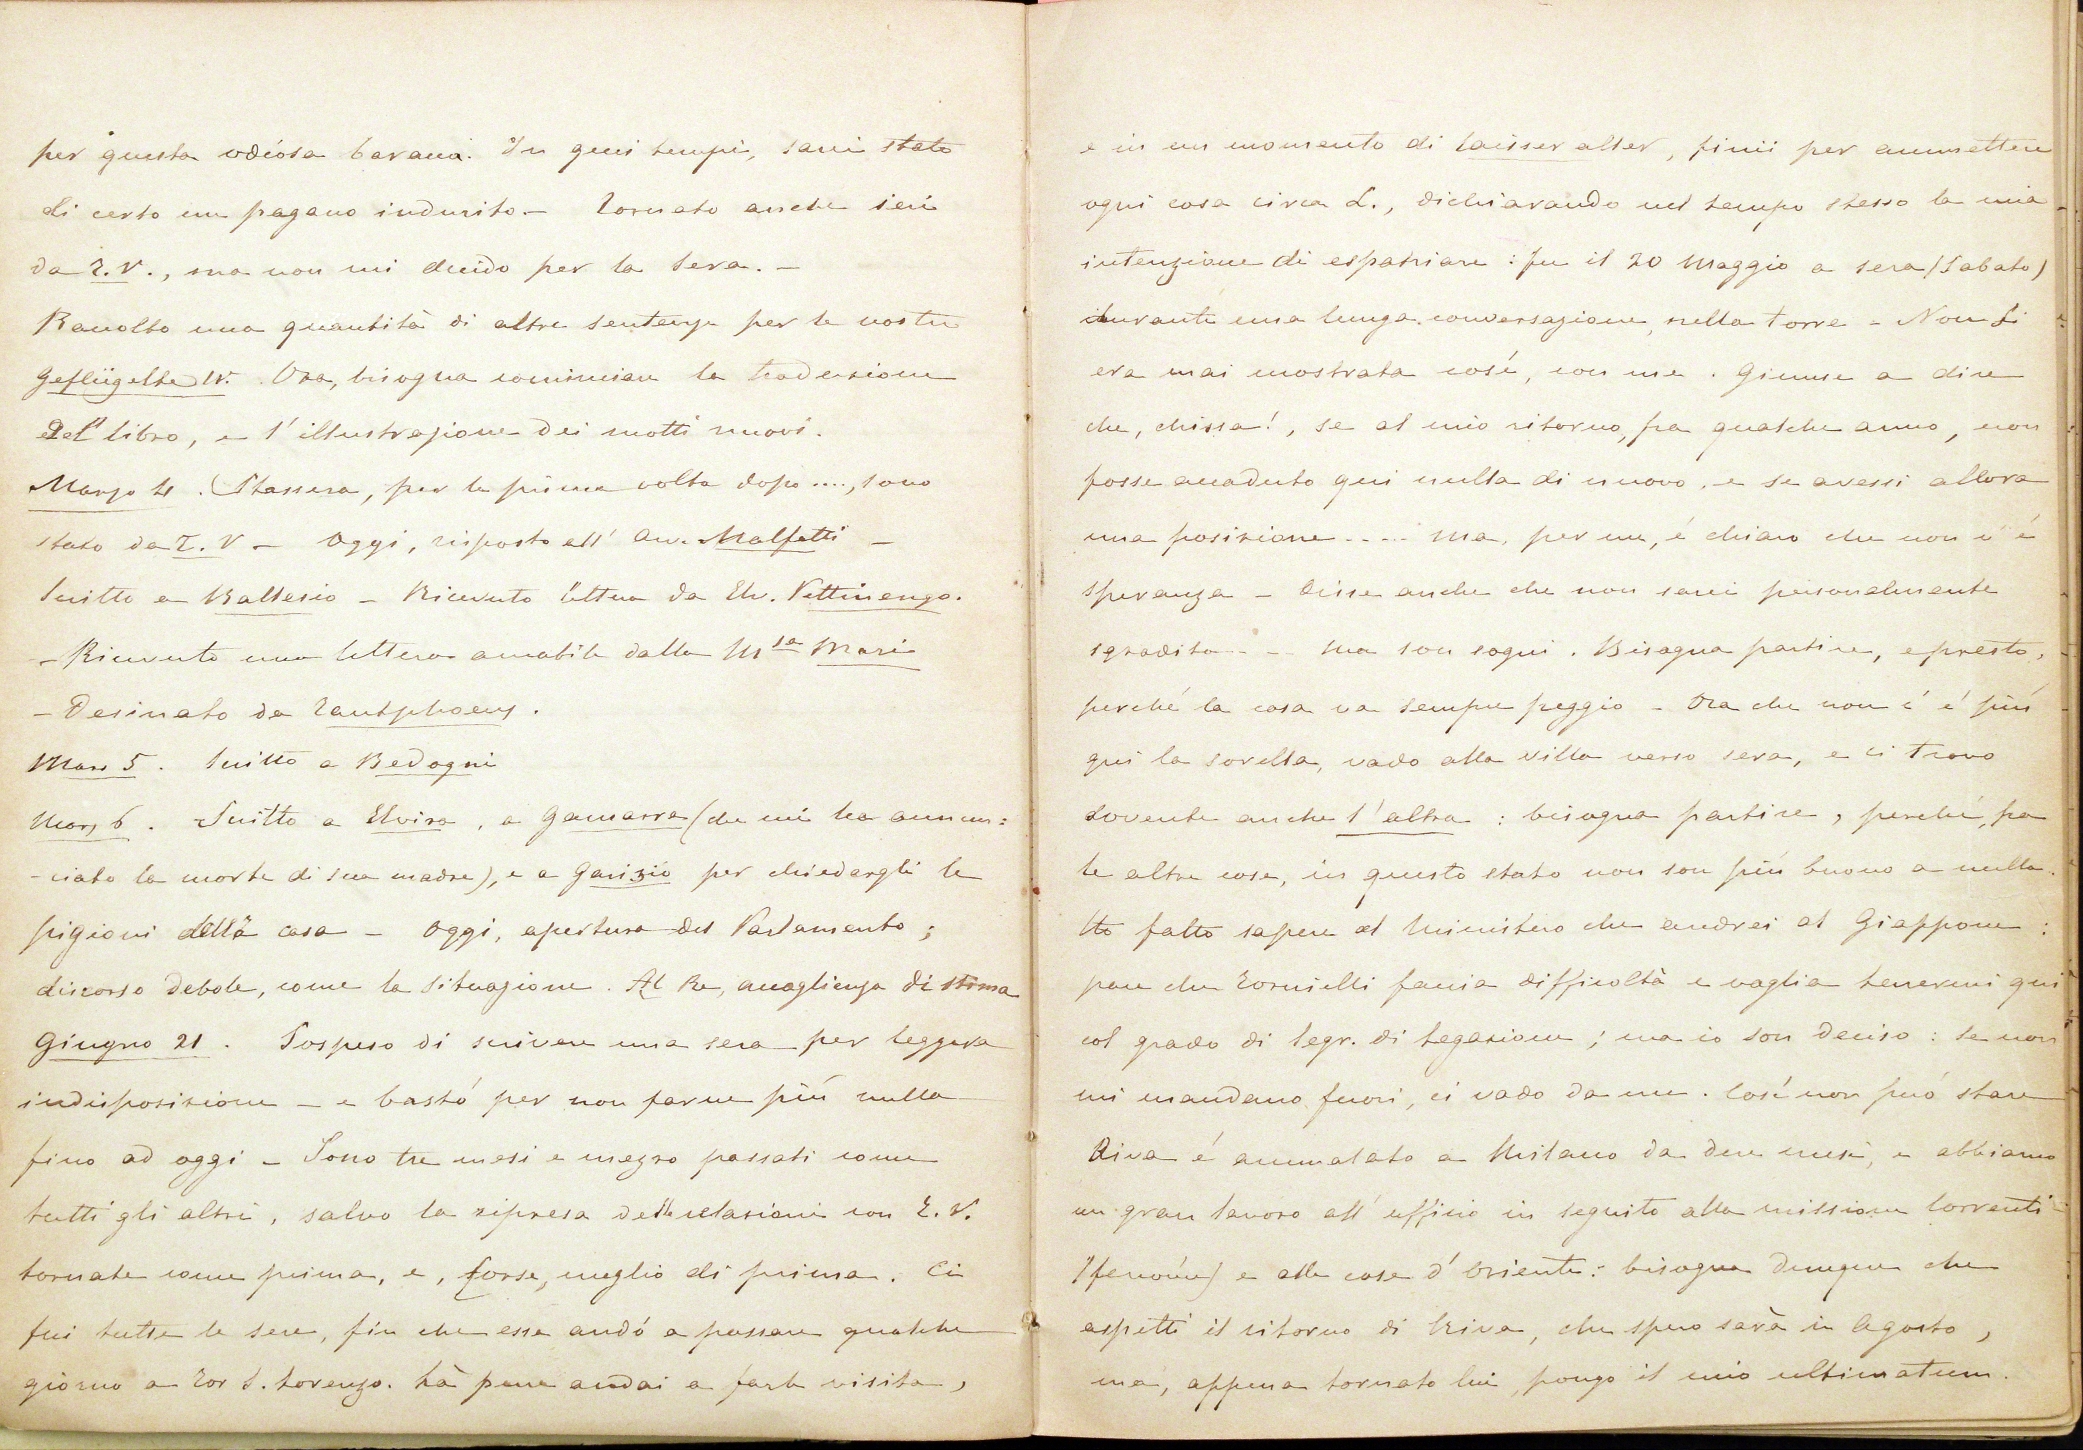 per questa odiosa baracca. In quei tempi, sarei stato
di certo un pagano indurito. – Tornato anche ieri
da E. V., ma non mi decido per la sera. –
Raccolto una quantità di altre sentenze per le nostre
Geflügelte W. Ora, bisogna cominciare la traduzione
del libro, e l'illustrazione dei motti nuovi.
Marzo 4. Stassera, per la prima volta dopo ...., sono
stato da E. V – Oggi, risposto all' Avv. Malfatti –
Scritto a Ballesio – Ricevuto lettera da Elv. Pettinengo.
– Ricevuto una lettera amabile dalla Msa Mari
– Desinato da
Marz 5. Scritto a Bedogni
Marz 6. Scritto a Elvira, a Gamarra (che mi ha annun=
-ciato la morte di sua madre), e a Garizio per chiedergli le
pigioni della casa – Oggi, apertura del Parlamento;
discorso debole, come la situazione. Al Re, accoglienza di stima
Giugno 21. Sospeso di scrivere una sera per leggera
indisposizione – e bastó per non farne piú nulla
fino ad oggi – Sono tre mesi e mezzo passati come
tutti gli altri, salvo la ripresa delle relazioni con E. V.
tornate come prima, e, forse, meglio di prima. Ci
fui tutte le sere, fin che essa andó a passare qualche
giorno a Tor S. Lorenzo. Là pure andai a farle visita,
e in un momento di laisser aller, finii per ammettere
ogni cosa circa L., dichiarando nel tempo stesso la mia
intenzione di espatriare: fu il 20 Maggio a sera (Sabato)
durante una lunga conversazione, nella torre – Non si
era mai mostrata cosí, con me. Giunse a dire
che, chissa!, se al mio ritorno, fra qualche anno, non
fosse accaduto qui nulla di nuovo, e se avessi allora
una posizione ..... Ma, per me, é chiaro che non c'é
speranza – Disse anche che non sarei personalmente
sgradito .. – Ma son sogni. Bisogna partire, e presto,
perché la cosa va sempre peggio – Ora che non c'é piú
qui la sorella, vado alla villa verso sera, e ci trovo
sovente anche l'altra: bisogna partire, perché, fra
le altre cose, in questo stato non son piú buono a nulla.
Ho fatto sapere al Ministero che andrei al Giappone:
pare che Tornielli faccia difficoltà e voglia tenermi qui
col grado di Segr. di Legazione; ma io son deciso: se non
mi mandano fuori, ci vado da me. Cosí non puó stare
Riva é ammalato a Milano da due mesi, e abbiamo
un gran lavoro all' uffizio in seguito alla missione Correnti
e alle cose d'Oriente: bisogna dunque che
aspetti il ritorno di Riva, che spero sarà in Agosto,
ma, appena tornato lui, pongo il mio ultimatum.